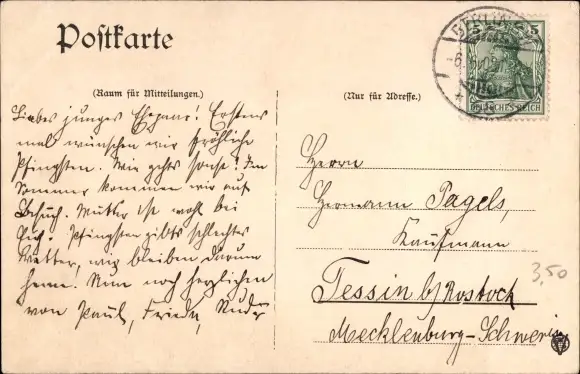 Postkarte
(Raum für Mitteilungen.)
(Nur für Adresse.)
BERLIN
5
DEUTSCHES REICH
Liebes junges Ehepaar! Erstens
mal wünschen wir fröhliche
Pfingsten. Wie gehts sonst? Im
Sommer kommen wir auf
Besuch. Mutter ist wohl bei
Euch. Pfingsten gibts schlechtes
Wetter, wir bleiben darum
heim. Nun noch herzlichen
von Paul, Frieda,
Herrn
Hermann Pagels,
Kaufmann
Tessin b/Rostock
Mecklenburg-Schwerin
3,50